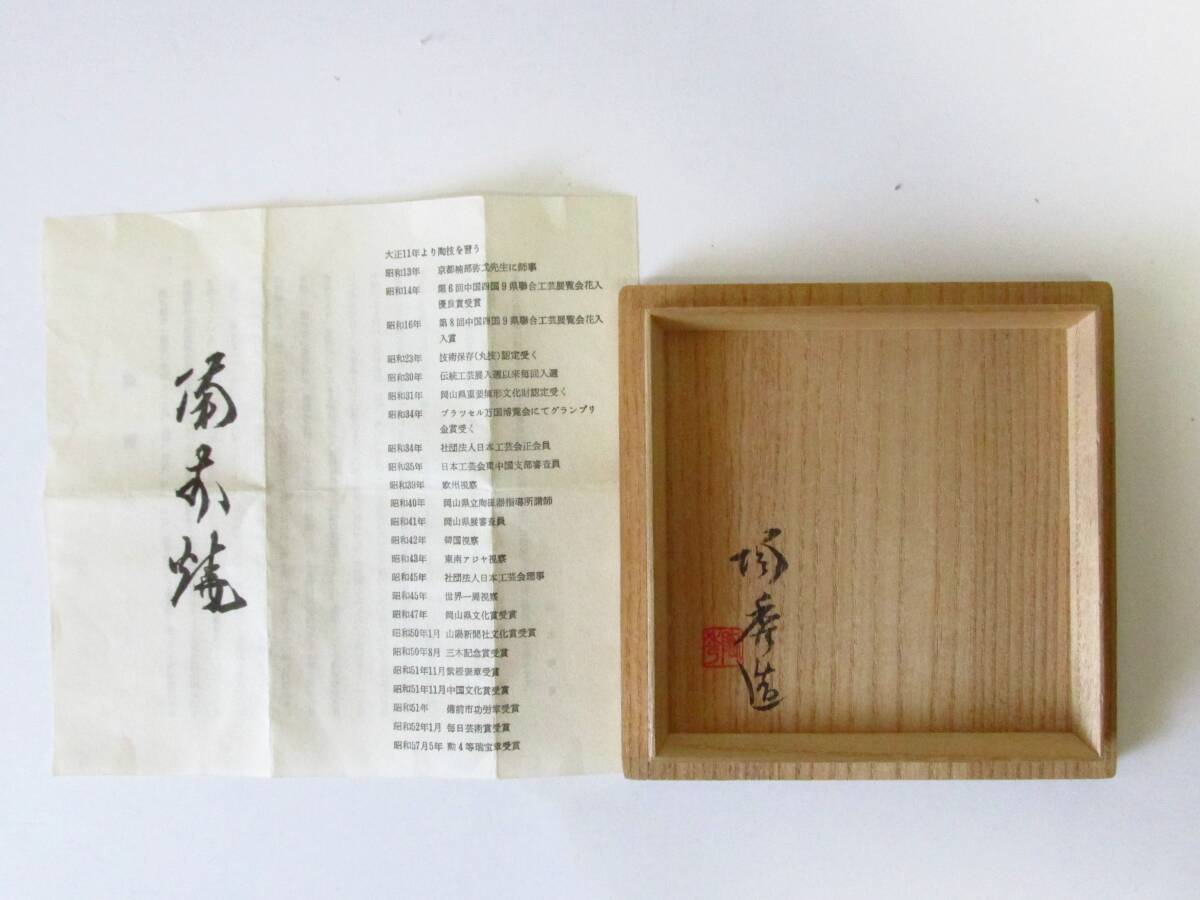 大正11年より陶技を習う
昭和13年 京都楠部弥弌先生に師事
昭和14年 第6回中国四国9県聯合工芸展覧会花入
優良賞受賞
昭和16年 第8回中国四国9県聯合工芸展覧会花入
入賞
昭和23年 技術保存(丸技)認定受く
昭和30年 伝統工芸展入選以来毎回入選
昭和31年 岡山県重要無形文化財認定受く
昭和34年 ブラッセル万国博覧会にてグランプリ
金賞受く
昭和34年 社団法人日本工芸会正会員
昭和35年 日本工芸会東中国支部審査員
昭和39年 欧州視察
昭和40年 岡山県立陶磁器指導所講師
昭和41年 岡山県展審査員
昭和42年 韓国視察
昭和43年 東南アジヤ視察
昭和45年 社団法人日本工芸会理事
昭和45年 世界一周視察
昭和47年 岡山県文化賞受賞
昭和50年1月 山陽新聞社文化賞受賞
昭和50年8月 三木記念賞受賞
昭和51年11月 紫綬褒章受賞
昭和51年11月 中国文化賞受賞
昭和51年 備前市功労章受賞
昭和52年1月 毎日芸術賞受賞
昭和57月5年 勲4等瑞宝章受賞
備前焼
陶秀造